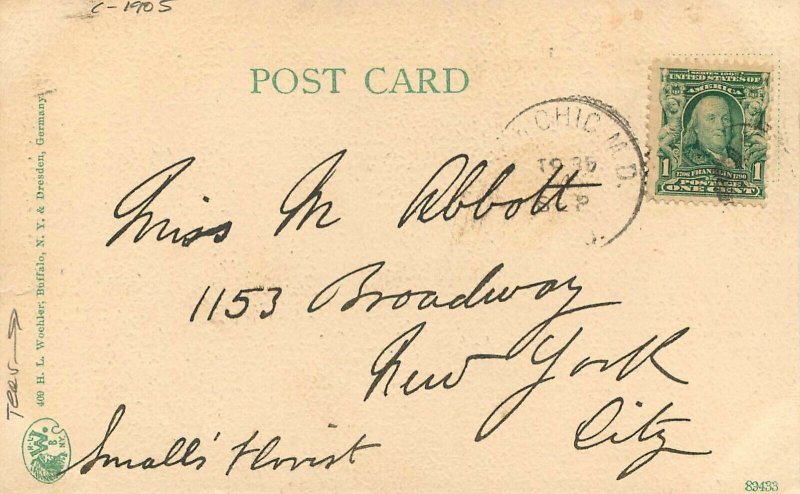 C-1905
POST CARD
SERIES 1902
UNITED STATES OF
AMERICA
1 1
1706 FRANKLIN 1790
POSTAGE
ONE CENT
CHIC M.D.
Miss M Abbott
1153 Broadway
New York
City
Small's Florist
409 H. L. Woehler, Buffalo, N. Y. & Dresden, Germany
H.L.
W.
B
N.Y.
89433